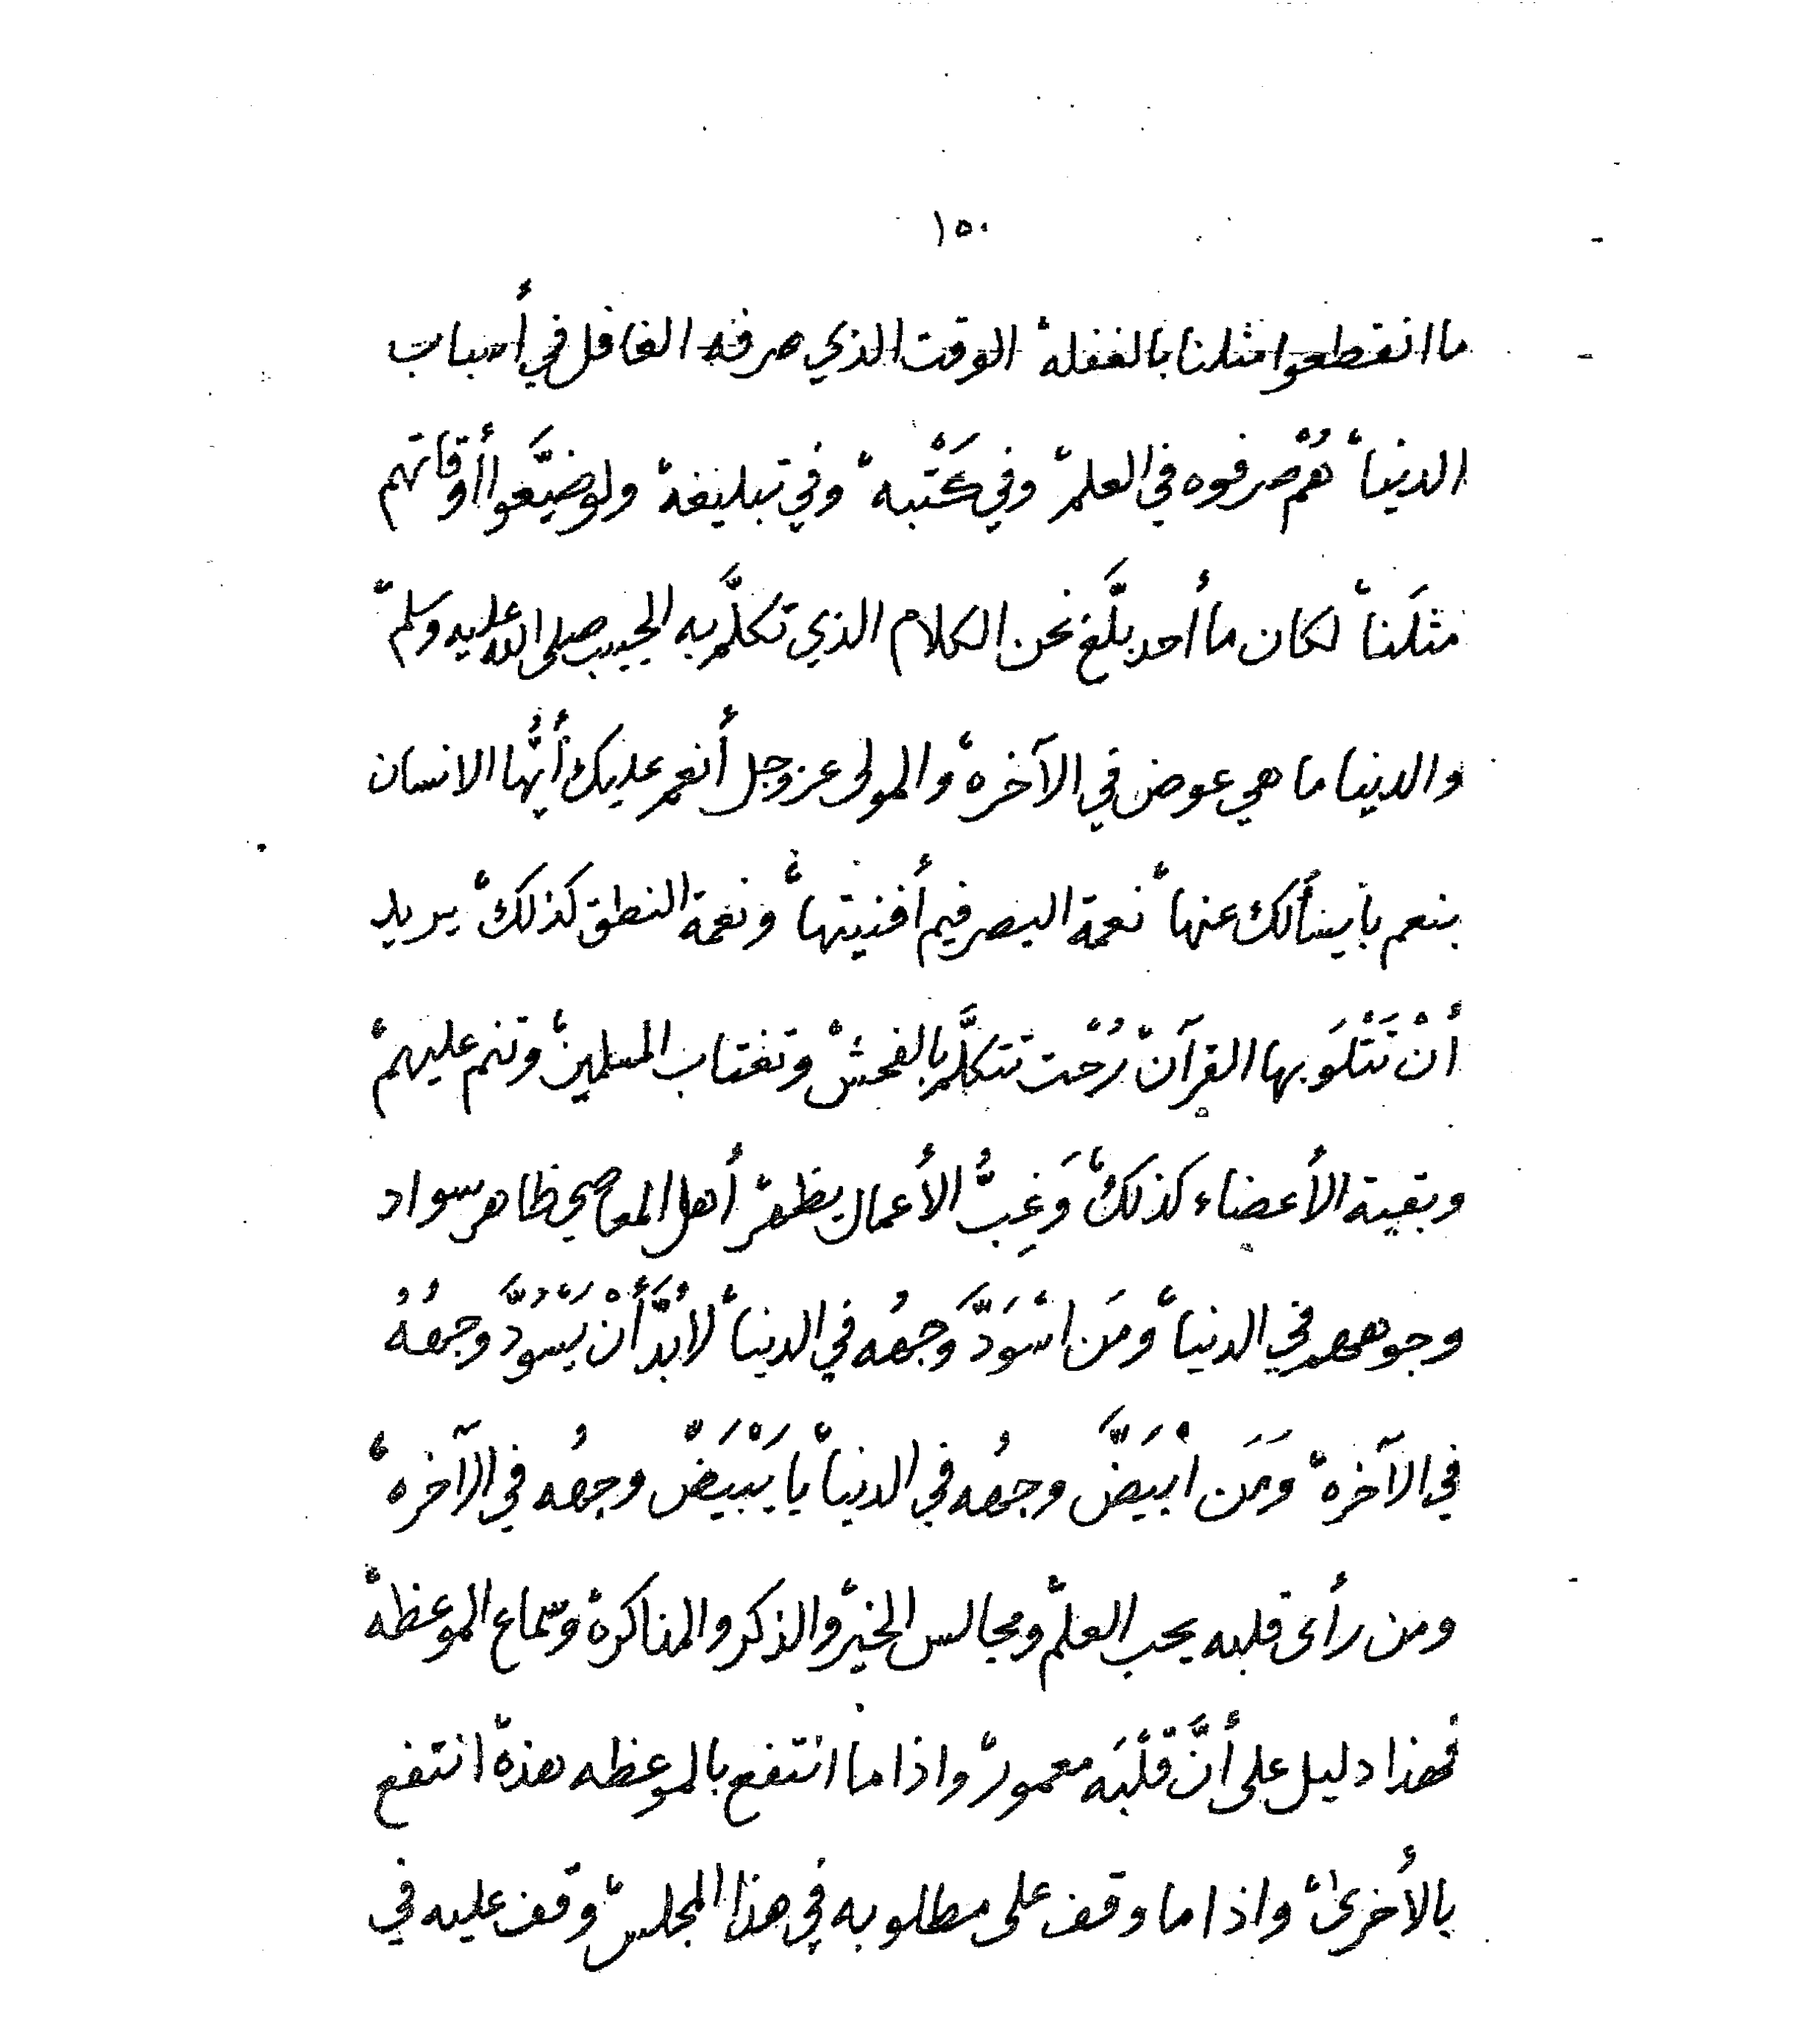 ١٥٠
ما انقطعوا مثلنا بالغفله، الوقت الذي صرفه الغافل في أسباب
الدنيا، هُمْ صرفوه في العلم، وفي كَتْبه، وفي تبليغه، ولو ضيَّعوا أوقاتهم
مثلَنا، لكان ما أحد بلَّغ نحن الكلام الذي تكلَّم به الحبيب صلى الله عليه وسلم،
والدنيا ما هي عوض في الآخره، والمولى عز وجل أنعم عليك أيُّها الانسان
بنعم با يسألك عنها، نعمة البصر فيم أفنيتها، ونعمة النطق كذلك، يريد
أنْ تَتْلوَ بها القرآن، رُحْت تتكلَّم بالفحش، وتغتاب المسلمين، وتنم عليهم،
وبقية الأعضاء كذلك، وَغِبُّ الأعمال يظهر، أهل المعاصي ظاهر سواد
وجوههم في الدنيا، ومَن اسْوَدَّ وَجهُه في الدنيا، لابُدَّ أَنْ يَسْوَدَّ وجهُهُ
في الآخره، وَمَن ابْيَضَّ وجهُه في الدنيا، با يَبْيَضّ وجهُه في الآخره،
ومن رأى قلبه يحب العلم، ومجالس الخير، والذكر والمذاكرة، وسماع الموعظه،
فهذا دليل على أنَّ قلْبَه معمور، واذا ما انتفع بالموعظه هذه، انتفع
بالأُخرى، واذا ما وقف على مطلوبه في هذا المجلس، وقف عليه في